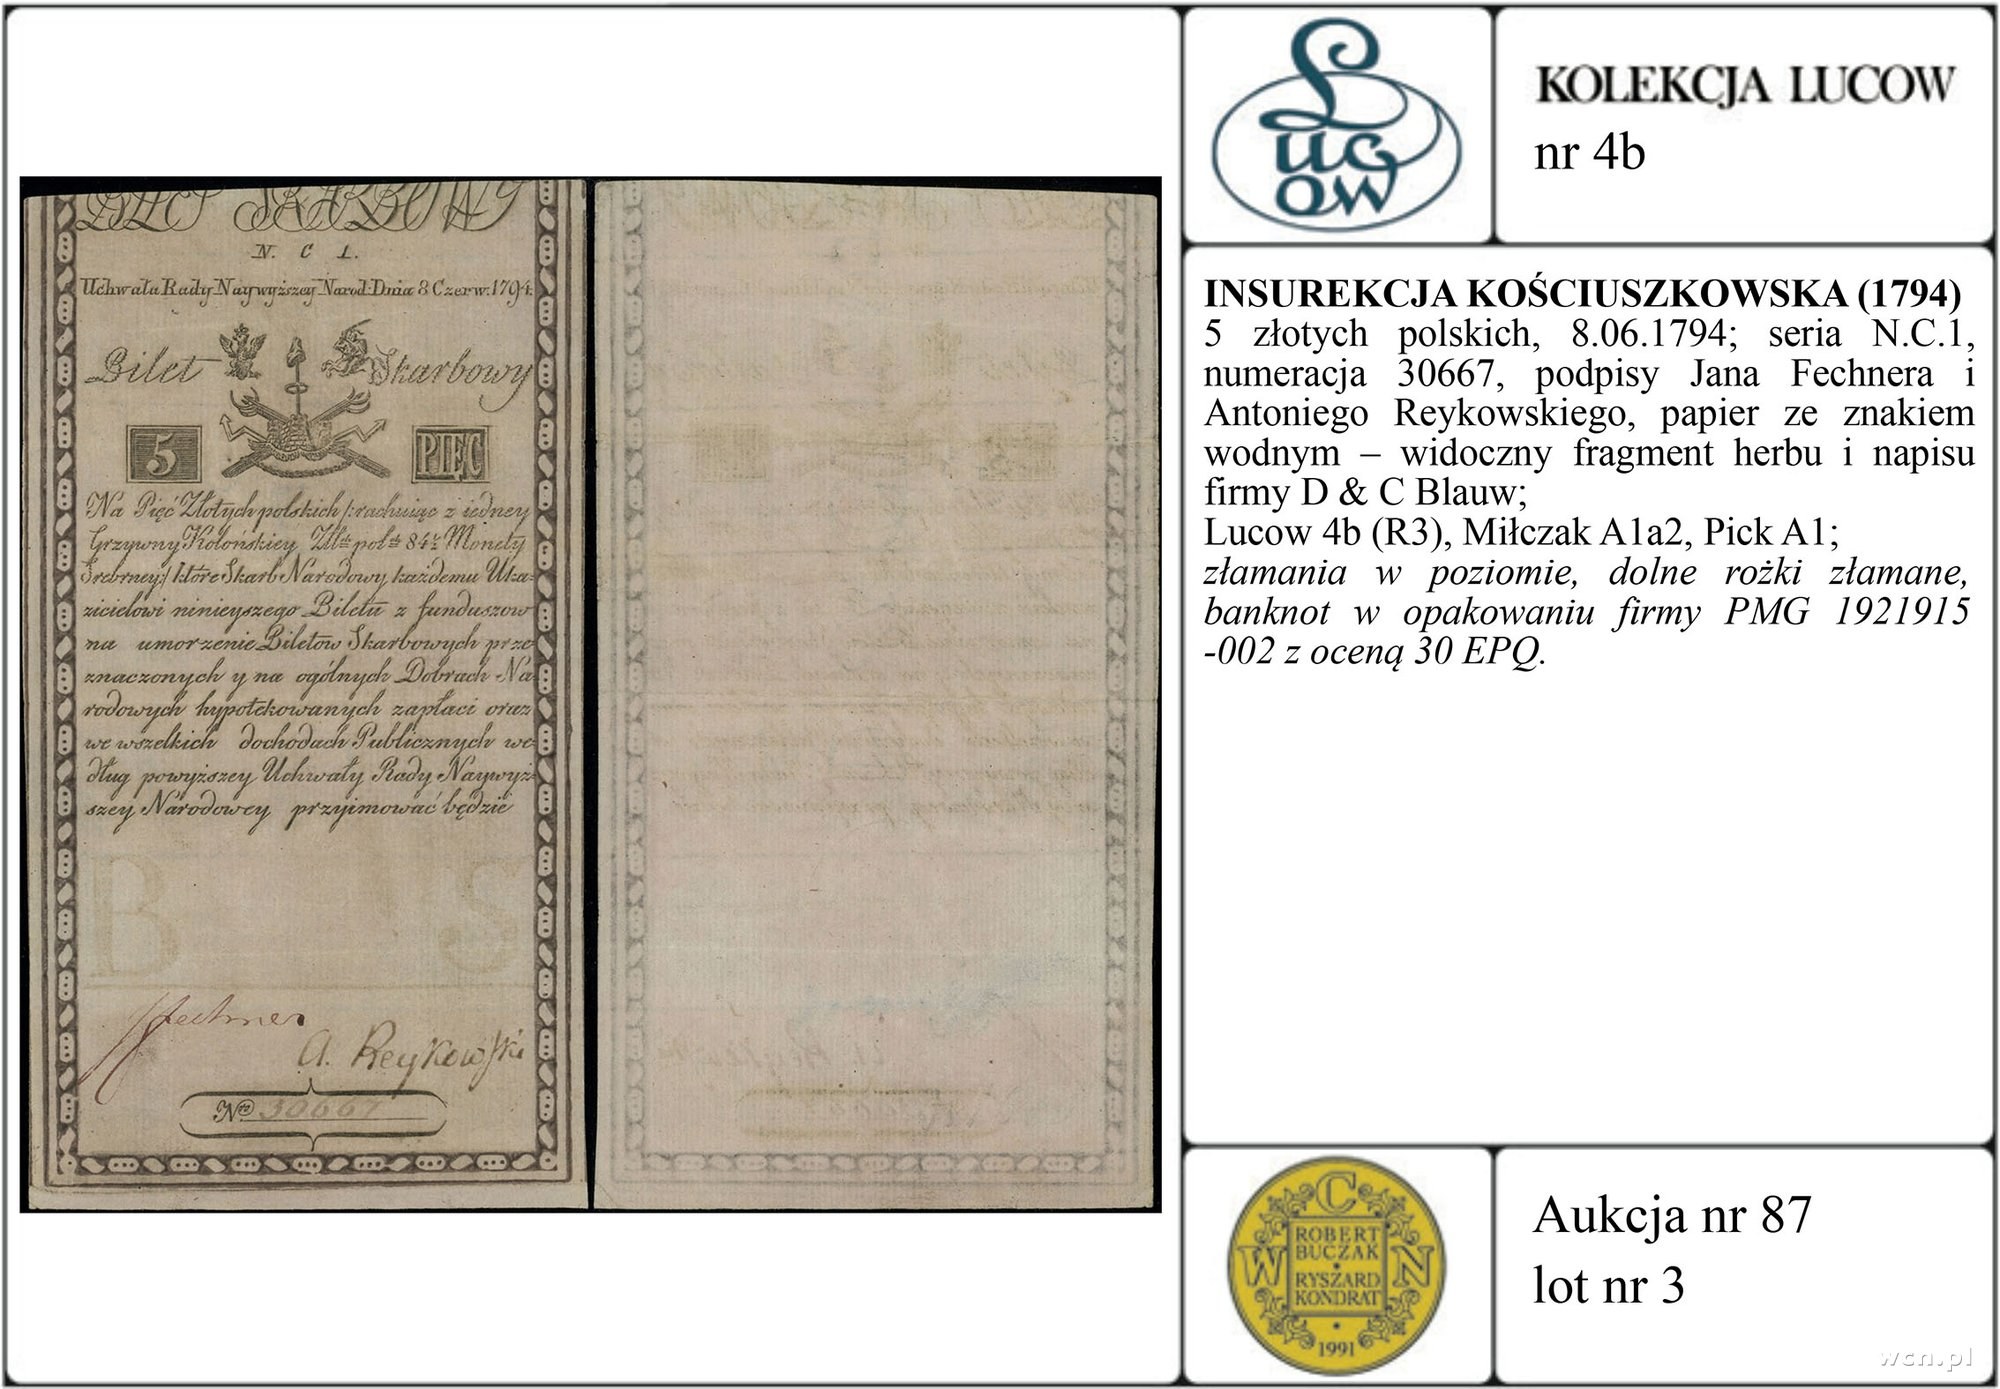 BILET SKARBOWY
N. C 1.
Uchwała Rady Naywyższey Narod: Dnia 8 Czerw. 1794.
Bilet Skarbowy
5 PIĘC
Na Pięć Złotych polskich /: rachuiąc z iedney
Grzywny Kolońskiey Zll: pol: 84 1/2 Monety
Srebrney :/ które Skarb Narodowy każdemu Uka-
zicielowi ninieyszego Biletu z funduszow
na umorzenie Biletów Skarbowych prze-
znaczonych y na ogólnych Dobrach Na-
rodowych hypotekowanych zapłaci oraz
we wszelkich dochodach Publicznych we-
dług powyższey Uchwały Rady Naywyż-
szey Narodowey przyimować będzie
B S
Fechner
A. Reykowski
Nro 30667
Lucow
KOLEKCJA LUCOW
nr 4b
INSUREKCJA KOŚCIUSZKOWSKA (1794)
5 złotych polskich, 8.06.1794; seria N.C.1,
numeracja 30667, podpisy Jana Fechnera i
Antoniego Reykowskiego, papier ze znakiem
wodnym – widoczny fragment herbu i napisu
firmy D & C Blauw;
Lucow 4b (R3), Miłczak A1a2, Pick A1;
złamania w poziomie, dolne rożki złamane,
banknot w opakowaniu firmy PMG 1921915
-002 z oceną 30 EPQ.
C
W N
ROBERT
BUCZAK
RYSZARD
KONDRAT
1991
Aukcja nr 87
lot nr 3
wcn.pl